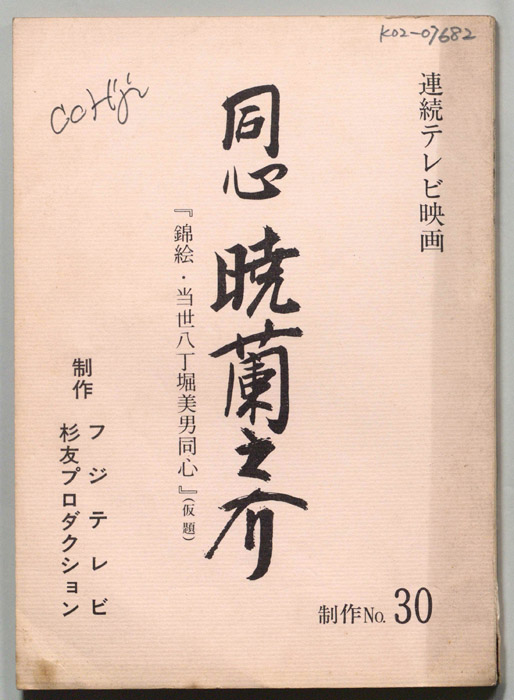 K02-07682
連続テレビ映画
同心 暁蘭之介
『錦絵・当世八丁堀美男同心』(仮題)
制作
フジテレビ
杉友プロダクション
制作No.30